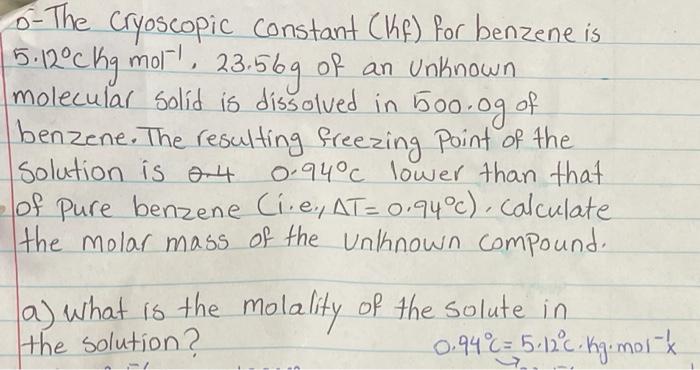 6- The Cryoscopic Constant (Kf) for benzene is
5.12°C kg mol⁻¹. 23.56g of an Unknown
molecular solid is dissolved in 500.0g of
benzene. The resulting freezing Point of the
Solution is 0.94°C lower than that
of Pure benzene (i.e., ΔT= 0.94°C). Calculate
the molar mass of the Unknown compound.
a) What is the molality of the solute in
the solution?
0.94°C = 5.12°C.kg.mol⁻¹x